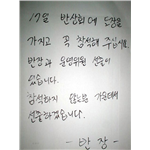 17일 반상회에 도장을
가지고 꼭 참석해 주십시요.
반장과 운영위원 선출이
있습니다.
참석하지 않는분 가운데에
선출하겠습니다.
- 반장 -